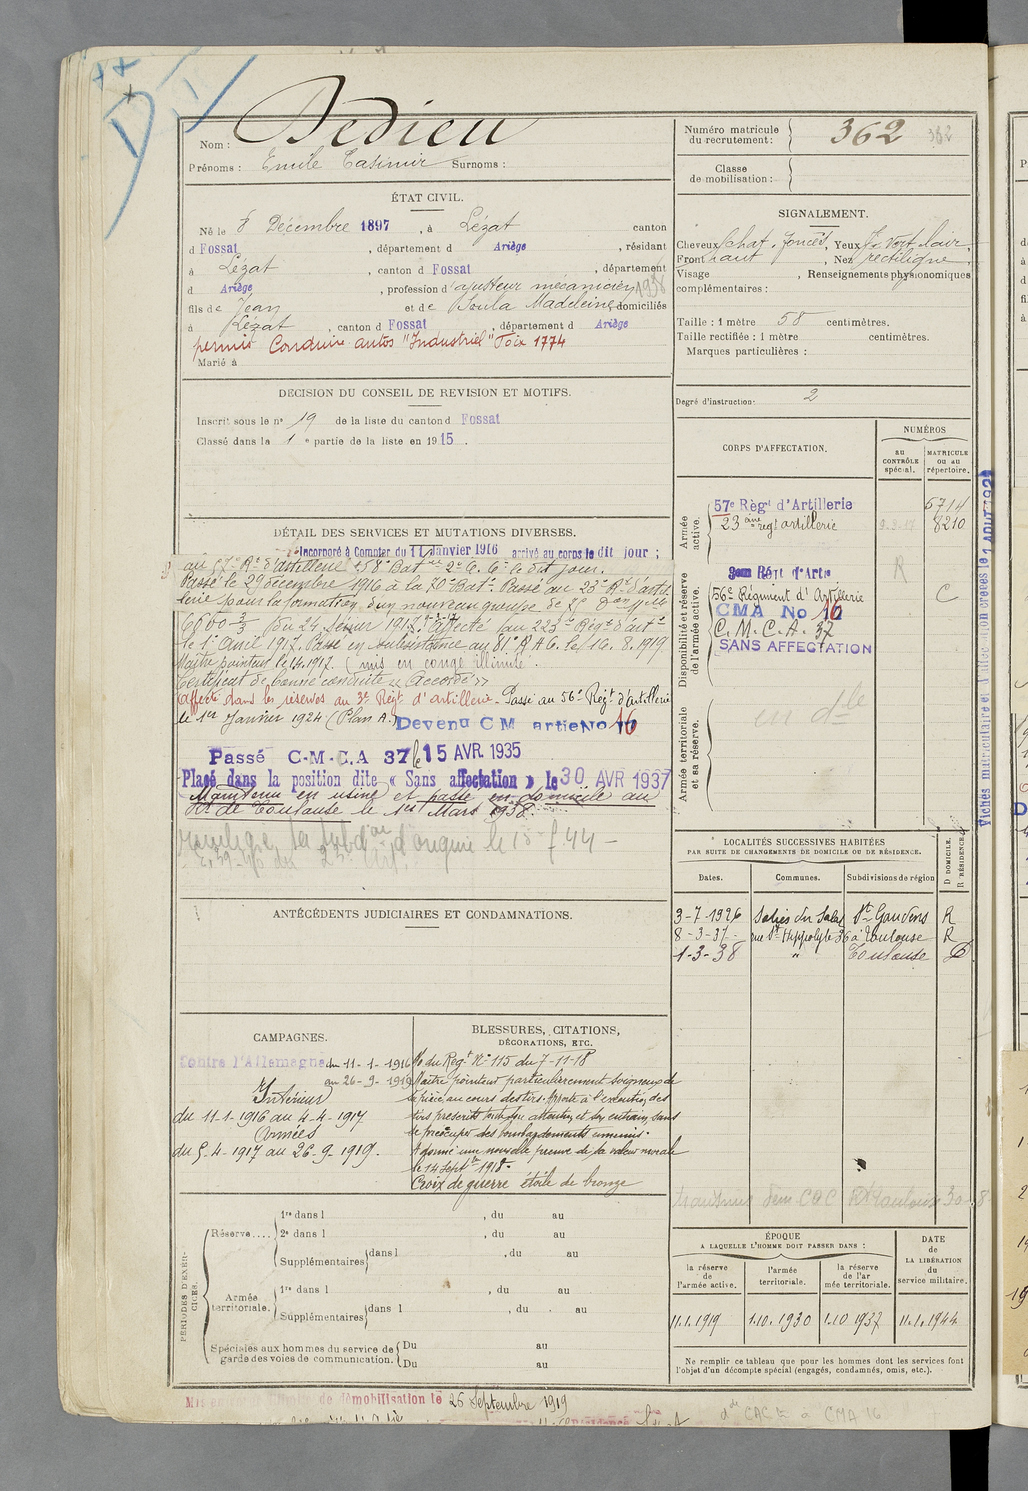 Nom : Dedieu
Prénoms : Emile Casimir Surnoms :
Numéro matricule du recrutement : 362 362
Classe de mobilisation :
ÉTAT CIVIL.
Né le 8 Décembre 1897, à Lézat canton
d Fossat, département d Ariège, résidant
à Lézat, canton d Fossat, département
d Ariège, profession d'ajusteur mécanicien 1938
fils de Jean et de Soula Madeleine, domiciliés
à Lézat, canton d Fossat, département d Ariège
permis Conduire autos "Industriel" Foix 1774
Marié à
SIGNALEMENT.
Cheveux Chat. foncés, Yeux vert clair,
Front haut, Nez rectiligne,
Visage , Renseignements physionomiques
complémentaires :
Taille : 1 mètre 58 centimètres.
Taille rectifiée : 1 mètre centimètres.
Marques particulières :
Degré d'instruction· 2
DÉCISION DU CONSEIL DE REVISION ET MOTIFS.
Inscrit sous le n° 19 de la liste du canton d Fossat
Classé dans la 1 e partie de la liste en 1915.
DÉTAIL DES SERVICES ET MUTATIONS DIVERSES.
Incorporé à Compter du 11 Janvier 1916 arrivé au corps le dit jour ;
au 57e Rt d'artillerie 58e Bat le dit jour.
Passé le 29 décembre 1916 à la 70e Batie Passé au 23e Rt d'artil
lerie pour la formation d'un nouveau groupe de
du 24 février 1917. affecté au 223e Régt d'artie
le 1er Avril 1917. Passé en subsistance au 81e R A L le 16.8.1919
Maître pointeur le 1.4.1917. (mis en congé illimité.
Certificat de bonne conduite « Accordé »
Affecté dans les réserves au 3e Régt d'artillerie - Passé au 56e Régt d'artillerie
le 1er Janvier 1924 (Plan A.) Devenu C M artie No 16
Passé C·M·C.A 37 le 15 AVR 1935
Placé dans la position dite « Sans affectation » le 30 AVR 1937
Maintenu en usine et passé en domicile au
Rt de Toulouse le 1er Mars 1938.
la subdon d'origine le 18 f 44 -
CORPS D'AFFECTATION.
NUMÉROS
au CONTRÔLE spécial.
MATRICULE ou au répertoire.
Armée active.
57e Règt d'Artillerie 6714
23 ème régt artillerie 8210
Disponibilité et réserve de l'armée active.
R
3em Régt d'Artie
56e Régiment d'Artillerie C
CMA No 16
C.M.C.A. 37
SANS AFFECTATION
Armée territoriale et sa réserve.
en dle
LOCALITÉS SUCCESSIVES HABITÉES
PAR SUITE DE CHANGEMENTS DE DOMICILE OU DE RÉSIDENCE.
Dates. Communes. Subdivisions de région D DOMICILE. R RÉSIDENCE.
3-7-1926 Salies du Salat St Gaudens R
8-3-37- rue St Hippolyte 36 à Toulouse R
1-3-38 " Toulouse D
ANTÉCÉDENTS JUDICIAIRES ET CONDAMNATIONS.
CAMPAGNES.
Contre l'Allemagne du 11-1-1916
au 26-9-1919
Intérieur
du 11-1-1916 au 4-4-1917
Armées
du 5-4-1917 au 26-9-1919.
BLESSURES, CITATIONS,
DÉCORATIONS, ETC.
O du Régt N° 115 du 7-11-18
Maître pointeur particulièrement soigneux de
sa pièce, au cours des tirs. Apporte à l'exécution des
tirs prescrits toute son attention et son entrain, sans
se préoccuper des bombardements ennemis.
A donné une nouvelle preuve de sa valeur morale
le 14 Septbre 1918.
Croix de guerre étoile de bronze
PÉRIODES D'EXERCICES.
Réserve....
1re dans l , du au
2e dans l , du au
Supplémentaires dans l , du au
Armée territoriale.
1re dans l , du au
Supplémentaires dans l , du au
Spéciales aux hommes du service de garde des voies de communication.
Du au
Du au
ÉPOQUE
A LAQUELLE L'HOMME DOIT PASSER DANS :
la réserve de l'armée active. l'armée territoriale. la réserve de l'armée territoriale.
DATE de LA LIBÉRATION du service militaire.
11.1.1919 1.10.1930 1.10 1937 11.1.1944
Ne remplir ce tableau que pour les hommes dont les services font
l'objet d'un décompte spécial (engagés, condamnés, omis, etc.).
de démobilisation le 26 Septembre 1919
de CAC à CMA 16